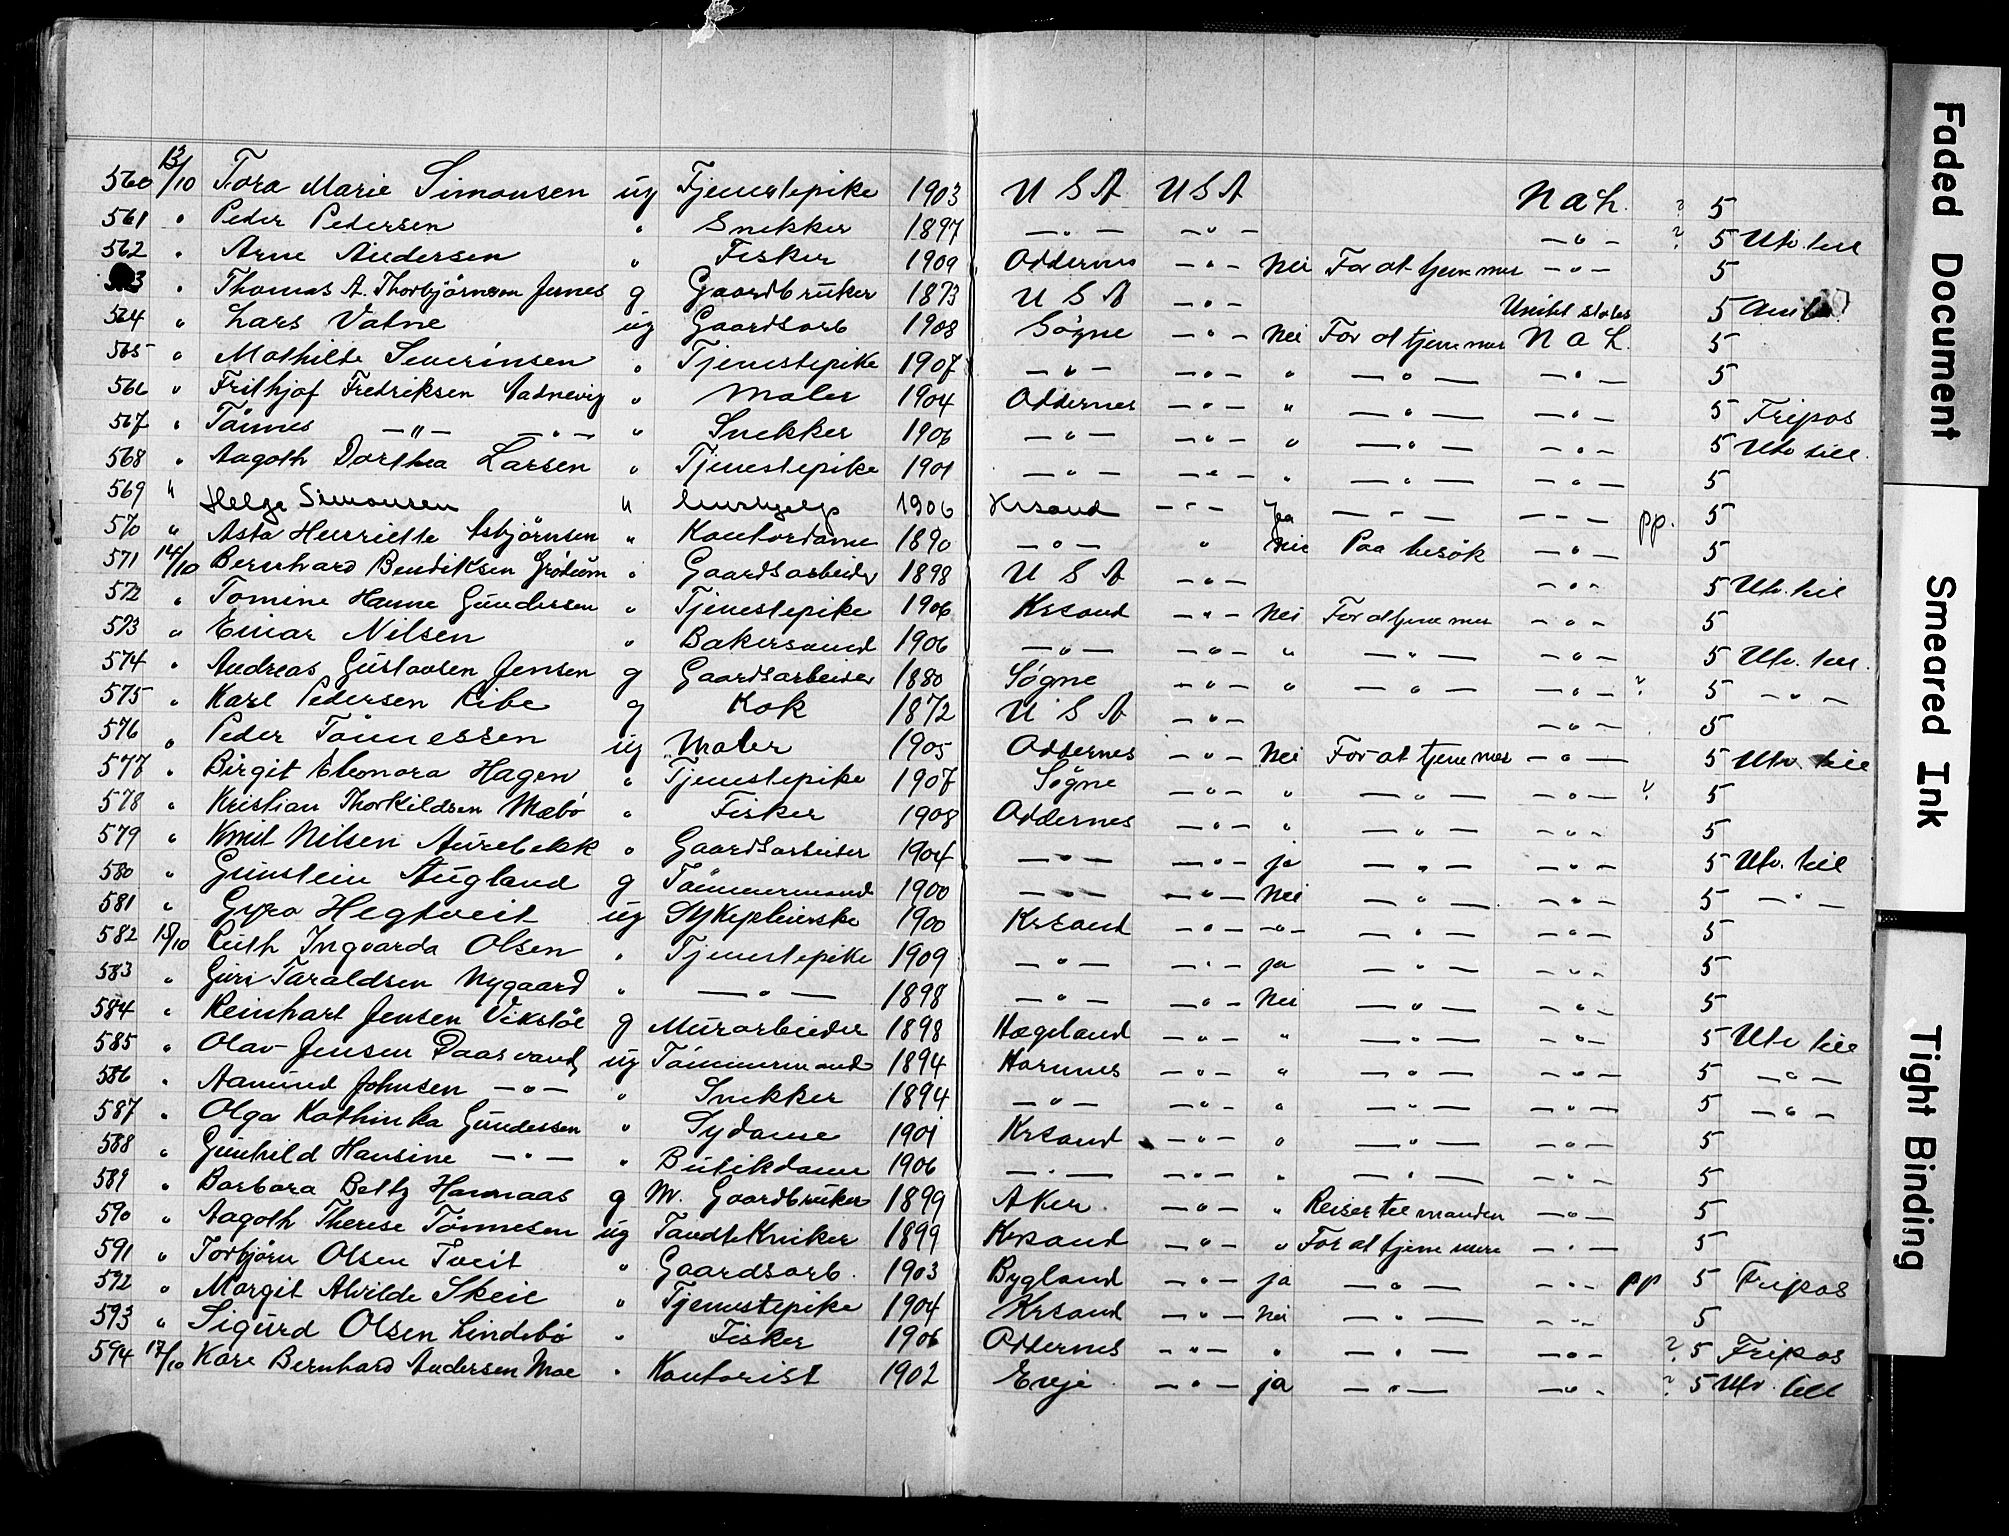 560 13/10 Tora Marie Simonsen ug Tjenestepike 1903 U S A U S A N a L. ? 5
561 " Peder Pedersen " Snekker 1897 — " — — " — — " — ? 5 Utv. till
562 " Arne Andersen " Fisker 1909 Oddernes — " — Nei For at tjene mer — " — 5
3 " Thomas A. Thorbjörnsen Jernes g Gaardbruker 1873 U S A — " — United states 5
564 " Lars Vatne ug Gaardsarb 1908 Søgne — " — Nei For at tjene mer N a L. 5
565 " Mathilde Severinsen " Tjenestepike 1907 — " — — " — " — " — — " — 5
566 " Frithjof Fredriksen Aadnevig " Maler 1904 Oddernes — " — " — " — — " — 5 Fripas
567 " Tönnes — " — — " — " Snekker 1906 — " — — " — " — " — — " — 5 Utv till.
568 " Aagoth Dorthea Larsen " Tjenestepike 1901 — " — — " — " — " — — " — 5
569 " Helge Simonsen " 1906 Krsand — " — Ja — " — — " — pp. 5
570 " Asta Henriette Asbjörnsen " Kontordame 1890 — " — " Nei Paa besök — " — 5
571 14/10 Bernhard Bendiksen " Gaardsarbeider 1898 U S A — " — — " — 5 Utv. till
572 " Tomine Hanne Gundersen " Tjenestepike 1906 Krsand — " — Nei For at tjene mer — " — 5
573 " Einar Nilsen " Bakersvend 1906 — " — — " — " — " — — " — 5 Utv. till.
574 " Andreas Gustavsen Jensen g Gaardsarbeider 1880 Søgne — " — " — " — — " — ? 5 — " —
575 " Karl Pedersen Ribe g Kok 1872 U S A — " — — " — 5
576 " Peder Tönnessen ug Maler 1905 Oddernes — " — Nei For at tjene mer — " — 5 Utv till
577 " Birgit Eleonora Hagen " Tjenestepike 1907 Søgne — " — " — " — — " — ? 5
578 " Kristian Thorkildsen Mæbö " Fisker 1908 Oddernes — " — " — " — — " — 5
579 " Knut Nilsen Aurebekk " Gaardsarbeider 1904 — " — — " — ja — " — — " — 5 Utv. till
580 " Gunstein Augland g Tömmermand 1900 — " — — " — Nei — " — — " — 5 — " —
581 " Gyro Hegtveit ug Sykepleierske 1900 Krsand — " — — " — — " — — " — 5
582 15/10 Ruth Ingvarda Olsen " Tjenestepike 1909 — " — — " — ja — " — — " — 5
583 " Guri Taraldsen Nygaard " — " — 1898 — " — — " — Nei — " — — " — 5
584 " Reinhart Jensen Vikstöl g Murarbeider 1898 Hægeland — " — " — " — — " — 5 Utv till
585 " Olav Jensen Daasvand ug Tömmermand 1894 Hornnes — " — " — " — — " — 5 — " —
586 " Aamund Johnsen — " — " Snekker 1894 — " — — " — " — " — — " — 5 — " —
587 " Olga Kathinka Gundersen " Sydame 1901 Krsand — " — " — " — — " — 5
588 " Gunhild Hansine — " — " Butikdame 1906 — " — — " — " — " — — " — 5
589 " Barbara Beltz Homnaas g M. Gaardbruker 1899 Aker — " — " Reiser til manden — " — 5
590 " Aagoth Therese Tönnesen ug Tandtekniker 1899 Krsand — " — " For at tjene mere — " — 5
591 " Torbjörn Olsen Tveit " Gaardsarb. 1903 Bygland — " — ja — " — — " — pp 5 Fripas
592 " Margit Alvilde Skeie " Tjenestepike 1904 Krsand — " — Nei — " — — " — 5
593 " Sigurd Olsen Lindebö " Fisker 1906 Oddernes — " — " — " — — " — ? 5 Fripas
594 17/10 Kåre Bernhard Andersen Moe " Kontorist 1902 Evje — " — ja — " — — " — ? 5 Utv. till
Faded Document
Smeared Ink
Tight Binding